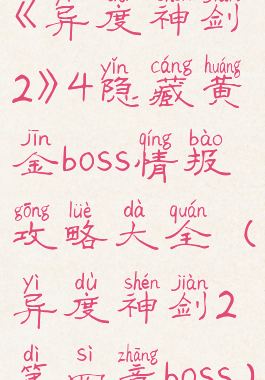 《异度神剑
yǐn cáng huáng
2》4隐藏黄
jīn qíng bào
金boss情报
gōng lüè dà quán
攻略大全（
yì dù shén jiàn
异度神剑2
dì sì zhāng
第四章boss）